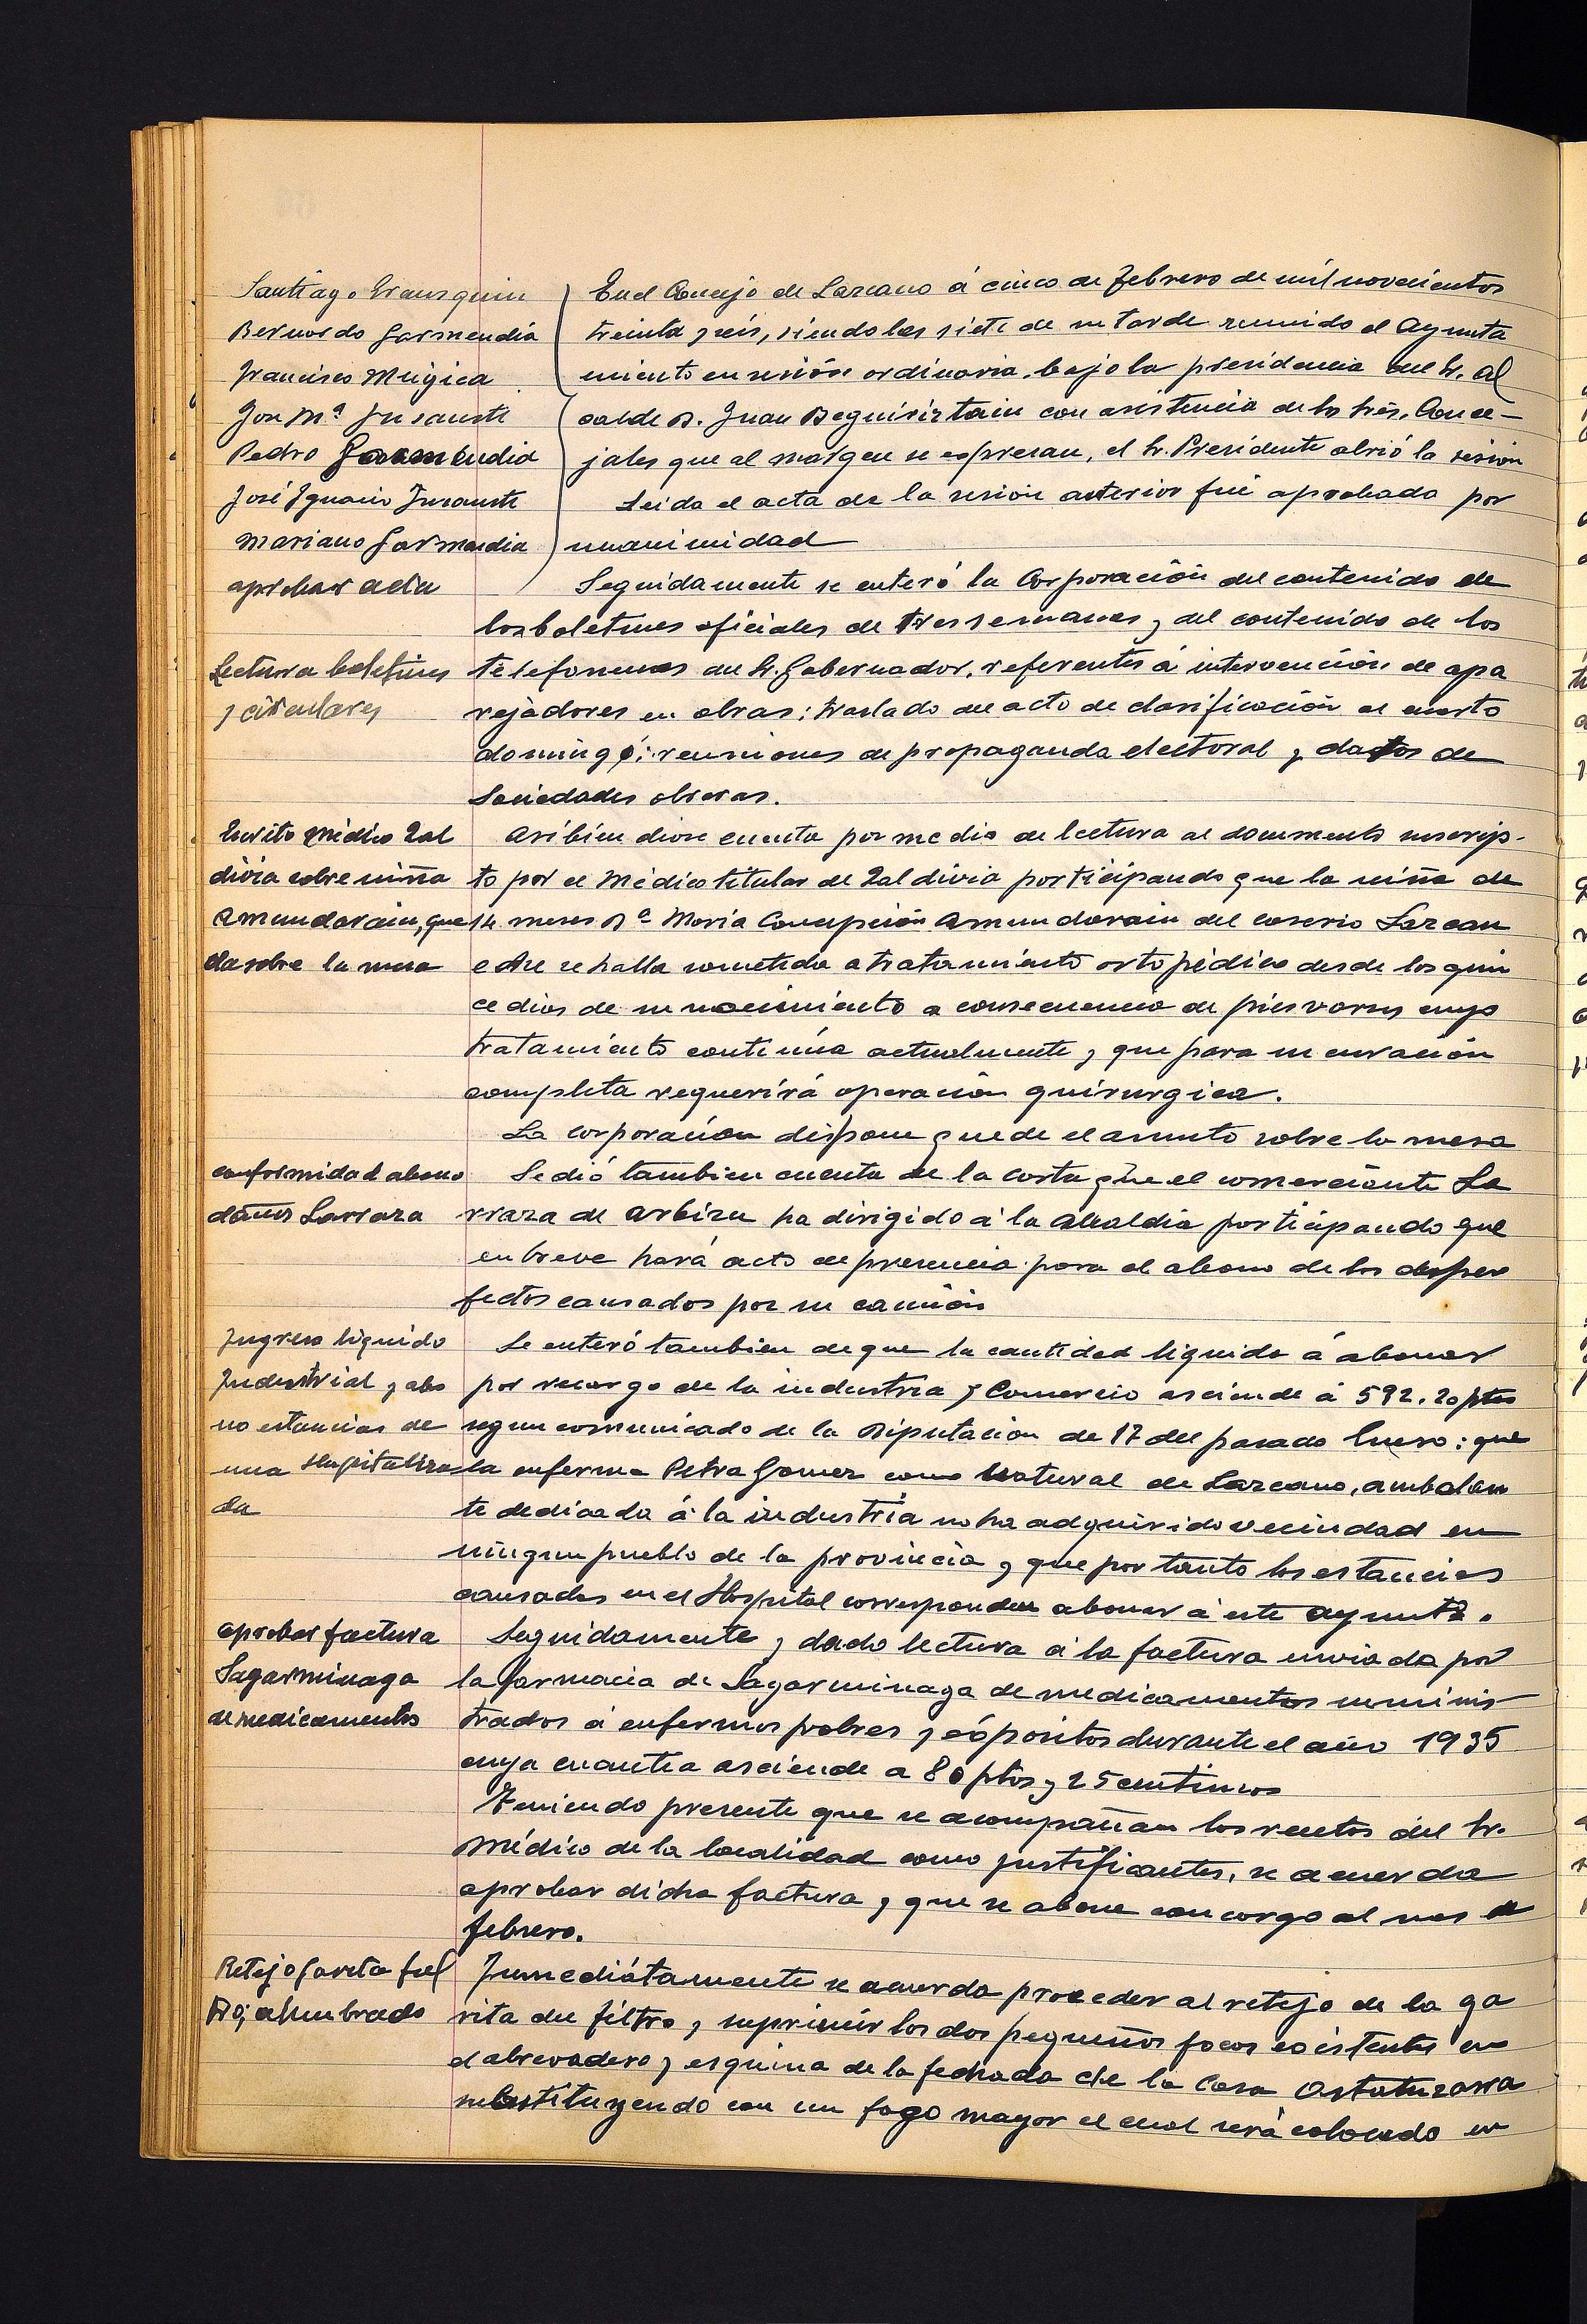 Santiago Erausquin
Bernardo Garmendia
Francisco Mugica
José Mª Insausti
Pedro Garmendia
José Ignacio Insausti
Mariano Garmendia
aprobar acta
En el Concejo de Lazcano á cinco de Febrero de mil novecientos
treinta y seis, siendo las siete de su tarde reunido el Ayunta
miento en sesión ordinaria, bajo la presidencia del Sr. Al
calde D. Juan Beguiristain con asistencia de los Srés. Conce-
jales que al margen se expresan, el Sr. Presidente abrió la sesion
Leida el acta de la sesion anterior fué aprobada por
unanimidad
Seguidamente se enteró la Corporación del contenido de
los boletines oficiales de tres semanas y del contenido de los
Lectura boletines
y circulares
telefonemas del Sr. Gobernador, referentes á intervención de apa
rejadores en obras; traslado del acto de clasificación al cuarto
domingo; reuniones de propaganda electoral y datos de
Sociedades obreras.
Escrito médico Zal
divia sobre niña
Amundarain, que
da sobre la mesa
Asi bien diose cuenta por medio de lectura al documento suscrip-
to por el Médico titular de Zaldivia participando que la niña de
14 meses Dª Maria Concepción Amundarain del caserio Lazcan
etxe se halla sometida a tratamiento ortopédico desde los quin
ce dias de su nacimiento a consecuencia de pies varus cuyo
tratamiento continúa actualmente y que para su curación
completa requerirá operación quirurgica.
La corporacion dispone quede el asunto sobre la mesa
conformidad abono
daños Larraza
Se dió tambien cuenta de la carta que el comerciante La
rraza de Arbizu ha dirigido á la Alcaldia participando que
en breve hará acto de presencia para el abono de los desper
fectos causados por su camión
Ingreso liquido
Industrial y abo
no estancias de
una Hospitaliza
da
Se enteró tambien de que la cantidad liquida á abonar
por recargo de la industria y Comercio asciende á 592.20 ptas
segun comunicado de la Diputacion de 17 del pasado Enero; que
la enferma Petra Gomez como natural de Lazcano, ambulan
te dedicada á la industria no ha adquirido vecindad en
ningun pueblo de la provincia y que por tanto las estancias
causadas en el Hospital corresponden abonar á este Ayuntº.
aprobar factura
Sagarminaga
de medicamentos
Seguidamente y dado lectura á la factura enviada por
la farmacia de Sagarminaga de medicamentos suminis
trados á enfermos pobres y expositos durante el año 1935
cuya cuantia asciende a 80 ptas y 25 centimos
Teniendo presente que se acompañan las recetas del Sr.
Médico de la localidad como justificantes, se acuerda
aprobar dicha factura y que se abone con cargo al mes de
febrero.
Retejo Garita fiel
tro; alumbrado
Inmediátamente se acuerda proceder al retejo de la ga
rita del filtro y suprimir los dos pequeños focos existentes en
el abrevadero y esquina de la fachada de la Casa
substituyendo con un fogo mayor el cual será colocado en